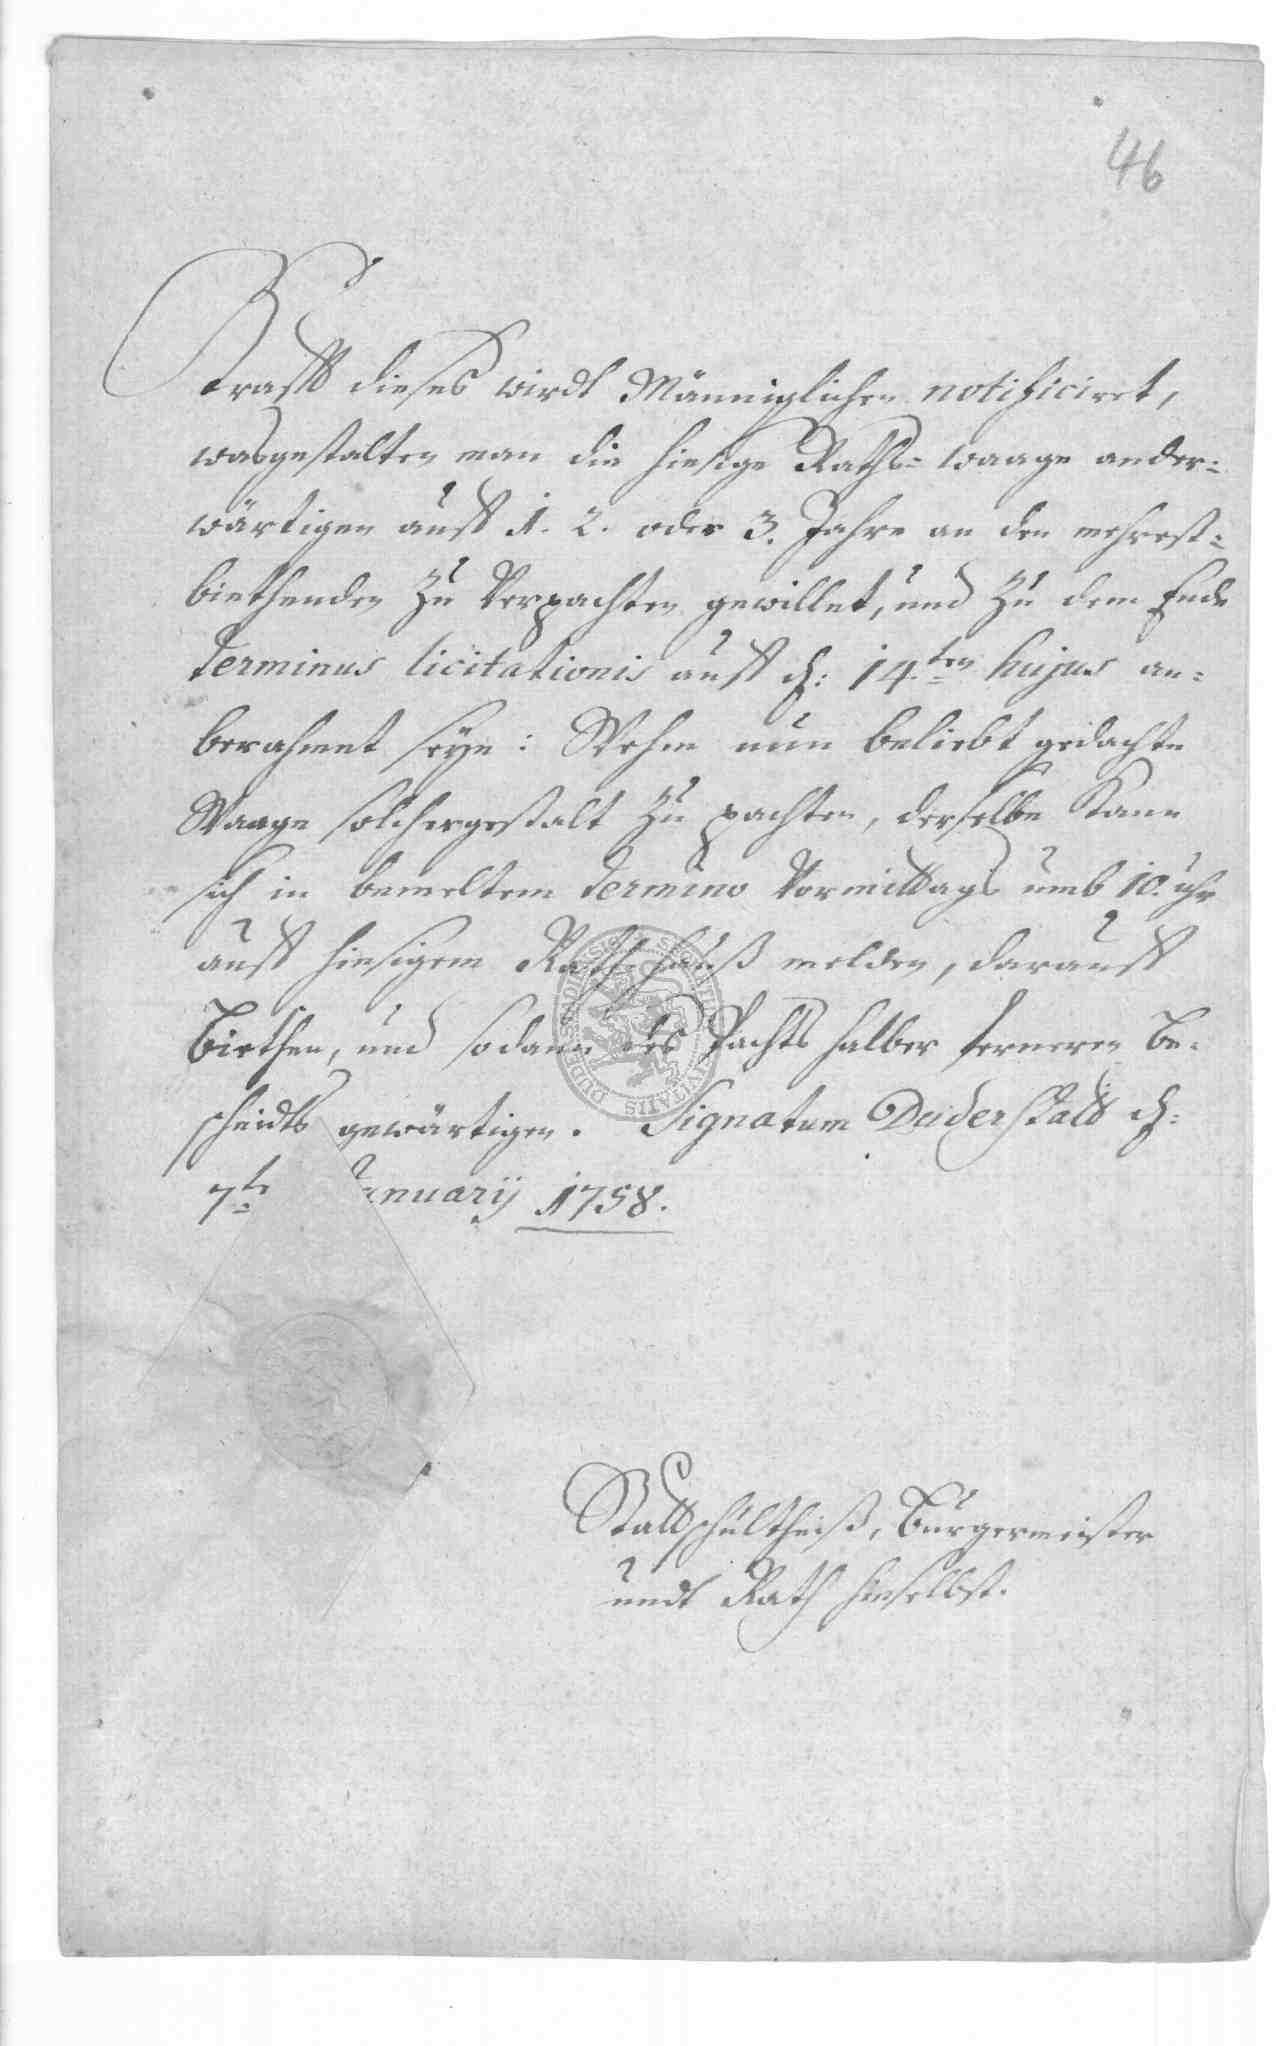 46
Krafft dieses wirdt Männiglichen notificiret,
wasgestalten man die hiesige Raths- waage ander-
wärtigen auff 1. 2. oder 3. Jahre an den mehrest-
biethenden zu Verpachten gewillet, und zu dem Ende
Terminus licitationis auff d: 14.ten hujus an-
berahmet seye: Wehm nun beliebt gedachte
Waage solchergestalt zu pachten, derselbe kann
sich in bemeltem Termino Vormittags umb 10. uhr
auff hiesigem Rathhauß melden, darauff
Biethen, und sodann des Pachts halber ferneren Be-
scheidts gewärtigen. Signatum Duderstadt d:
7te Januarij 1758.
Stattschultheiß, Bürgermeister
undt Rath hieselbst.